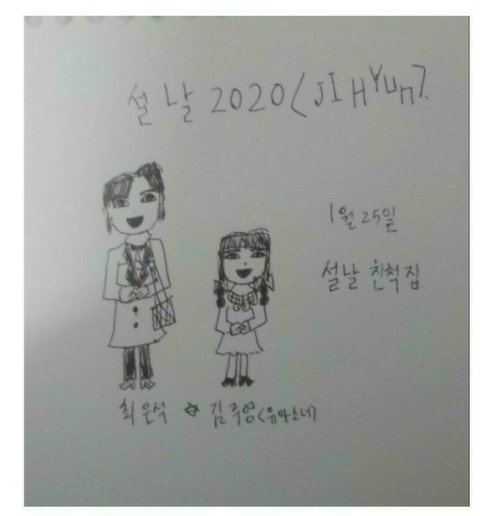 설날 2020 (JIHYUn)
1월 25일
설날 친척집
최은석 ☆ 김주영(유아소녀)